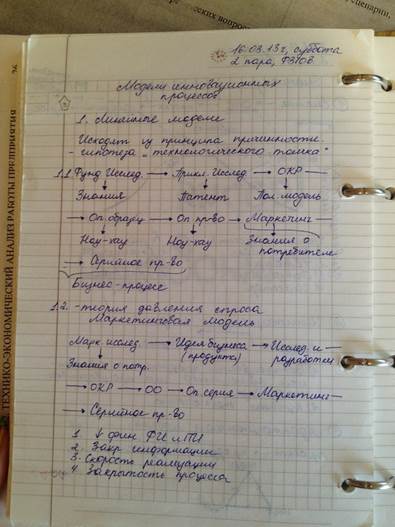 16.03.13г., суббота
2 пара,
Модели инновационных
процессов
1. Линейные модели
Исходят из принципа причинности
- гипотеза "технологического толчка"
1.1 Фунд. Исслед. → Прикл. Исслед → ОКР —
Знания Патент Пол. модель
→ Оп. образец → Оп пр-во → Маркетинг —
Ноу-хау Ноу-хау Знания о
потребителе
→ Серийное пр-во
Бизнес-процесс
1.2. - теория давления спроса
Маркетинговая модель
Марк. исслед. → Идея бизнеса → Исслед. и —
(продукта) разработки
Знания о потр.
→ ОКР → ОО → Оп. серия → Маркетинг —
→ Серийное пр-во
1. ↓ фин ФИ и ПИ
2. Закр информации
3. Скорость реализации
4. Закрытость процесса
ТЕХНИКО-ЭКОНОМИЧЕСКИЙ АНАЛИЗ РАБОТЫ ПРЕДПРИЯТИЯ